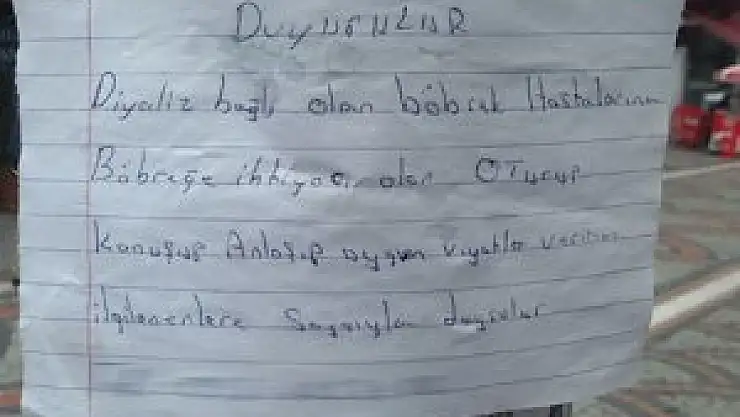 Duyurular
Diyaliz bağlı olan böbrek Hastalarına
Böbreğe ihtiyacı olan OTurup
Konuşup Anlaşıp uygun fiyatla verilir
ilgilenenlere Saygıyla duyrulur